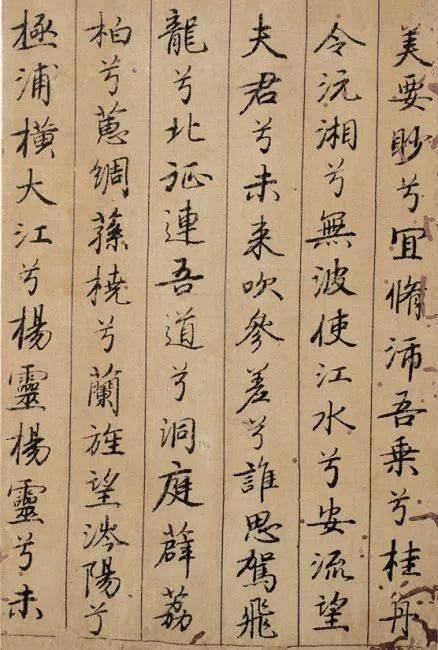 美要眇兮宜脩沛吾乗兮桂舟
令沅湘兮無波使江水兮安流望
夫君兮未来吹參差兮誰思駕飛
龍兮北征連吾道兮洞庭薜荔
柏兮蕙綢蓀橈兮蘭旌望涔陽兮
極浦橫大江兮楊靈楊靈兮未